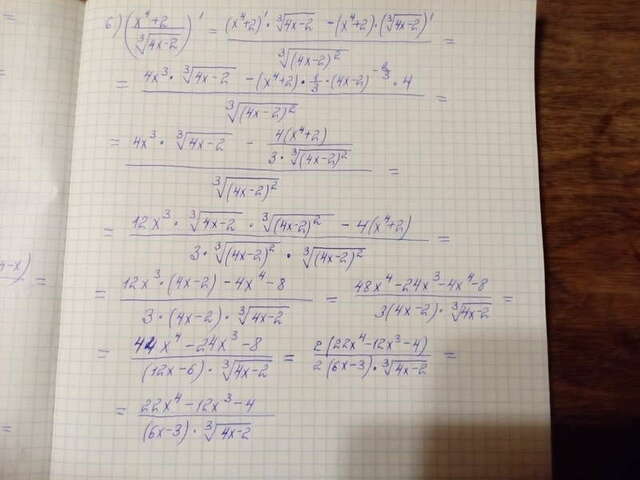 б) ((x⁴+2)/∛(4x-2))' = ((x⁴+2)'·∛(4x-2) - (x⁴+2)·(∛(4x-2))')/∛((4x-2)²) =
= (4x³·∛(4x-2) - (x⁴+2)·1/3·(4x-2)^(-2/3)·4)/∛((4x-2)²) =
= (4x³·∛(4x-2) - 4(x⁴+2)/(3·∛((4x-2)²)))/∛((4x-2)²) =
= (12x³·∛(4x-2)·∛((4x-2)²) - 4(x⁴+2))/(3·∛((4x-2)²)·∛((4x-2)²)) =
4-x) =
= (12x³·(4x-2) - 4x⁴ - 8)/(3·(4x-2)·∛(4x-2)) = (48x⁴ - 24x³ - 4x⁴ - 8)/(3(4x-2)·∛(4x-2)) =
= (44x⁴ - 24x³ - 8)/((12x-6)·∛(4x-2)) = 2(22x⁴ - 12x³ - 4)/(2(6x-3)·∛(4x-2)) =
= (22x⁴ - 12x³ - 4)/((6x-3)·∛(4x-2))